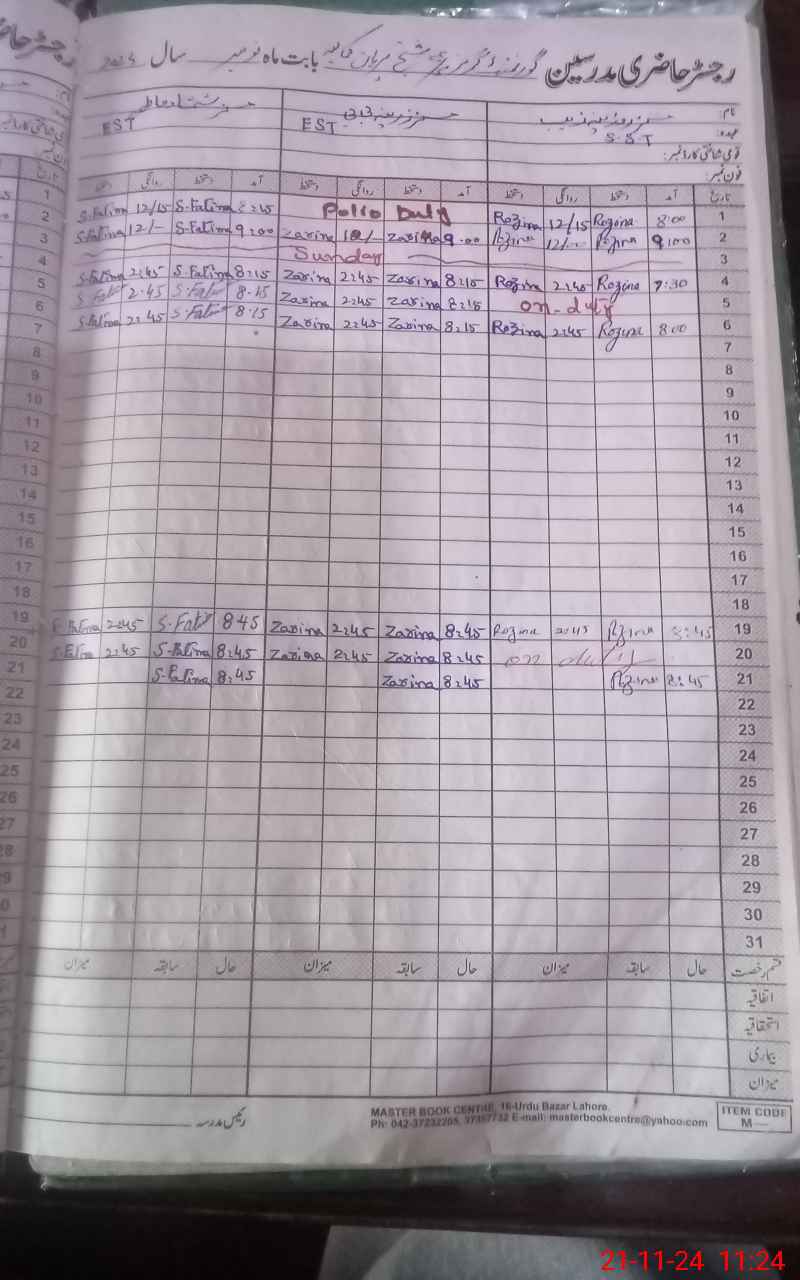 رجسٹر حاضری مدرسین گورنمنٹ گرلز بابت ماہ نومبر سال
نام:
عہدہ: S.ST EST EST
قومی شناختی کارڈ نمبر:
فون نمبر:
تاریخ آمد دستخط روانگی دستخط آمد دستخط روانگی دستخط آمد دستخط روانگی دستخط
S.Fatima 12/15 S.Fatima 8:15 Polio Duty Rozina 12/15 Rozina 8:00 1
S.Fatima 12/- S.Fatima 9:00 Zarina 12/- Zarina 9:00 Rozina 12/- Rozina 9:00 2
Sunday 3
S.Fatima 2:45 S.Fatima 8:15 Zarina 2:45 Zarina 8:15 Rozina 2:45 Rozina 7:30 4
S.Fatima 2:45 S.Fatima 8:15 Zarina 2:45 Zarina 8:15 on-duty 5
S.Fatima 2:45 S.Fatima 8:15 Zarina 2:45 Zarina 8:15 Rozina 2:45 Rozina 8:00 6
7
8
9
10
11
12
13
14
15
16
17
18
S.Fatima 2:45 S.Fatima 8:45 Zarina 2:45 Zarina 8:45 Rozina 2:45 Rozina 8:45 19
S.Fatima 2:45 S.Fatima 8:45 Zarina 2:45 Zarina 8:45 on duty 20
S.Fatima 8:45 Zarina 8:45 Rozina 8:45 21
22
23
24
25
26
27
28
29
30
31
قسم رخصت حال سابقہ میزان حال سابقہ میزان حال سابقہ میزان
اتفاقیہ
استحقاقیہ
بیماری
میزان
رئیس مدرسہ
MASTER BOOK CENTRE, 16-Urdu Bazar Lahore.
Ph: 042-37232205, 37357732 E-mail: masterbookcentre@yahoo.com
ITEM CODE
M—
21-11-24 11:24